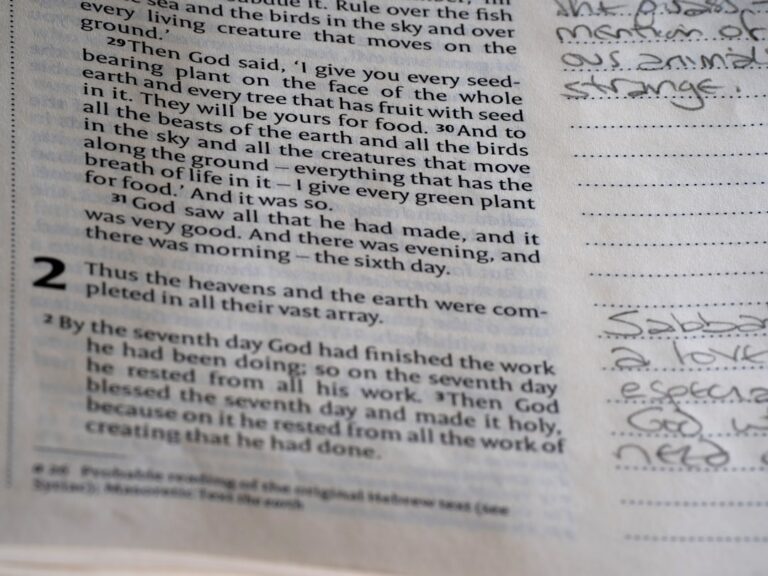 sea and the birds in the sky and over
every living creature that moves on the
ground.’
29Then God said, ‘I give you every seed-
bearing plant on the face of the whole
earth and every tree that has fruit with seed
in it. They will be yours for food. 30And to
all the beasts of the earth and all the birds
in the sky and all the creatures that move
along the ground – everything that has the
breath of life in it – I give every green plant
for food.’ And it was so.
31 God saw all that he had made, and it
was very good. And there was evening, and
there was morning – the sixth day.
2 Thus the heavens and the earth were com-
pleted in all their vast array.
2 By the seventh day God had finished the work
he had been doing; so on the seventh day
he rested from all his work. 3Then God
blessed the seventh day and made it holy,
because on it he rested from all the work of
creating that he had done.
a 26 Probable reading of the original Hebrew text (see
Syriac); Masoretic Text the earth
mention of
ous animals
strange.
Sabba
a love
especia
God w
need